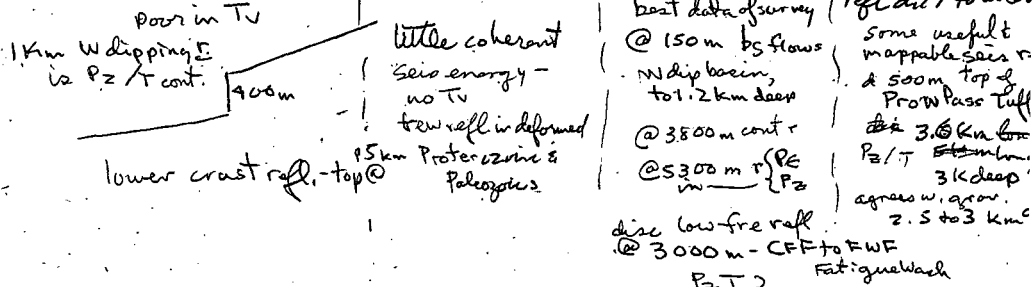 poor in Tv
1 Km W dipping r
is Pz / T cont.
400m
lower crust refl. - top @
15 km
little coherent
seis energy -
no Tv
few refl in deformed
Proterozoic &
Paleozoics
best data of survey
@ 150 m bs flows
W dip basin,
to 1.2 km deep
@ 3800 m cont r
@ 5300 m r { PЄ
Pz
disc low-fre refl
@ 3000 m - CFF to FWF
Fatigue Wash
Pz T ?
some useful &
mappable seis r
@ 500m top of
Prow Pass Tuff
3.6 Km
Pz/T
3 K deep
agrees w. grav.
2.5 to 3 km